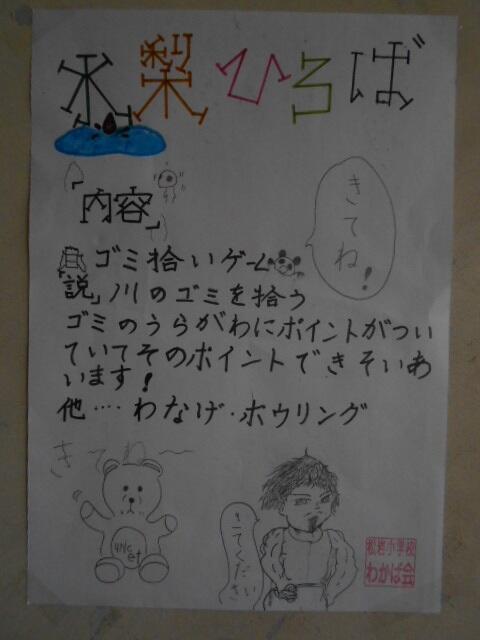 水梨ひろば
きてね!
「内容」
ゴミ拾いゲーム
「説」川のゴミを拾う
ゴミのうらがわにポイントがつい
ていてそのポイントできそいあ
います!
他‥‥わなげ・ホウリング
きてね〜
きてください
松岩小学校
わかば会